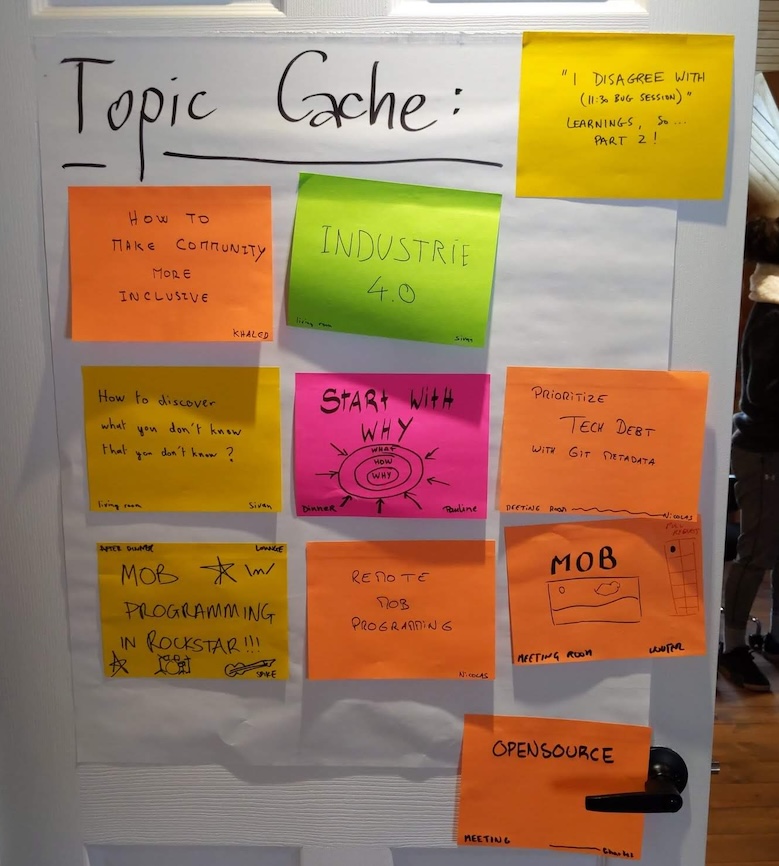 Topic Cache:
"I DISAGREE WITH
(11:30 BUG SESSION)"
LEARNINGS, SO...
PART 2!
HOW TO
MAKE COMMUNITY
MORE
INCLUSIVE
KHALED
INDUSTRIE
4.0
living room
Sivan
How to discover
what you don't know
that you don't know?
living room
Sivan
START WITH
WHY
WHAT
HOW
WHY
Dinner
Pauline
PRIORITIZE
TECH DEBT
WITH GIT METADATA
MEETING ROOM
NICOLAS
AFTER DINNER
LOUNGE
MOB
PROGRAMMING
IN ROCKSTAR!!!
SPIKE
REMOTE
MOB
PROGRAMMING
NICOLAS
MOB
MEETING ROOM
WOUTER
OPENSOURCE
MEETING
Charles